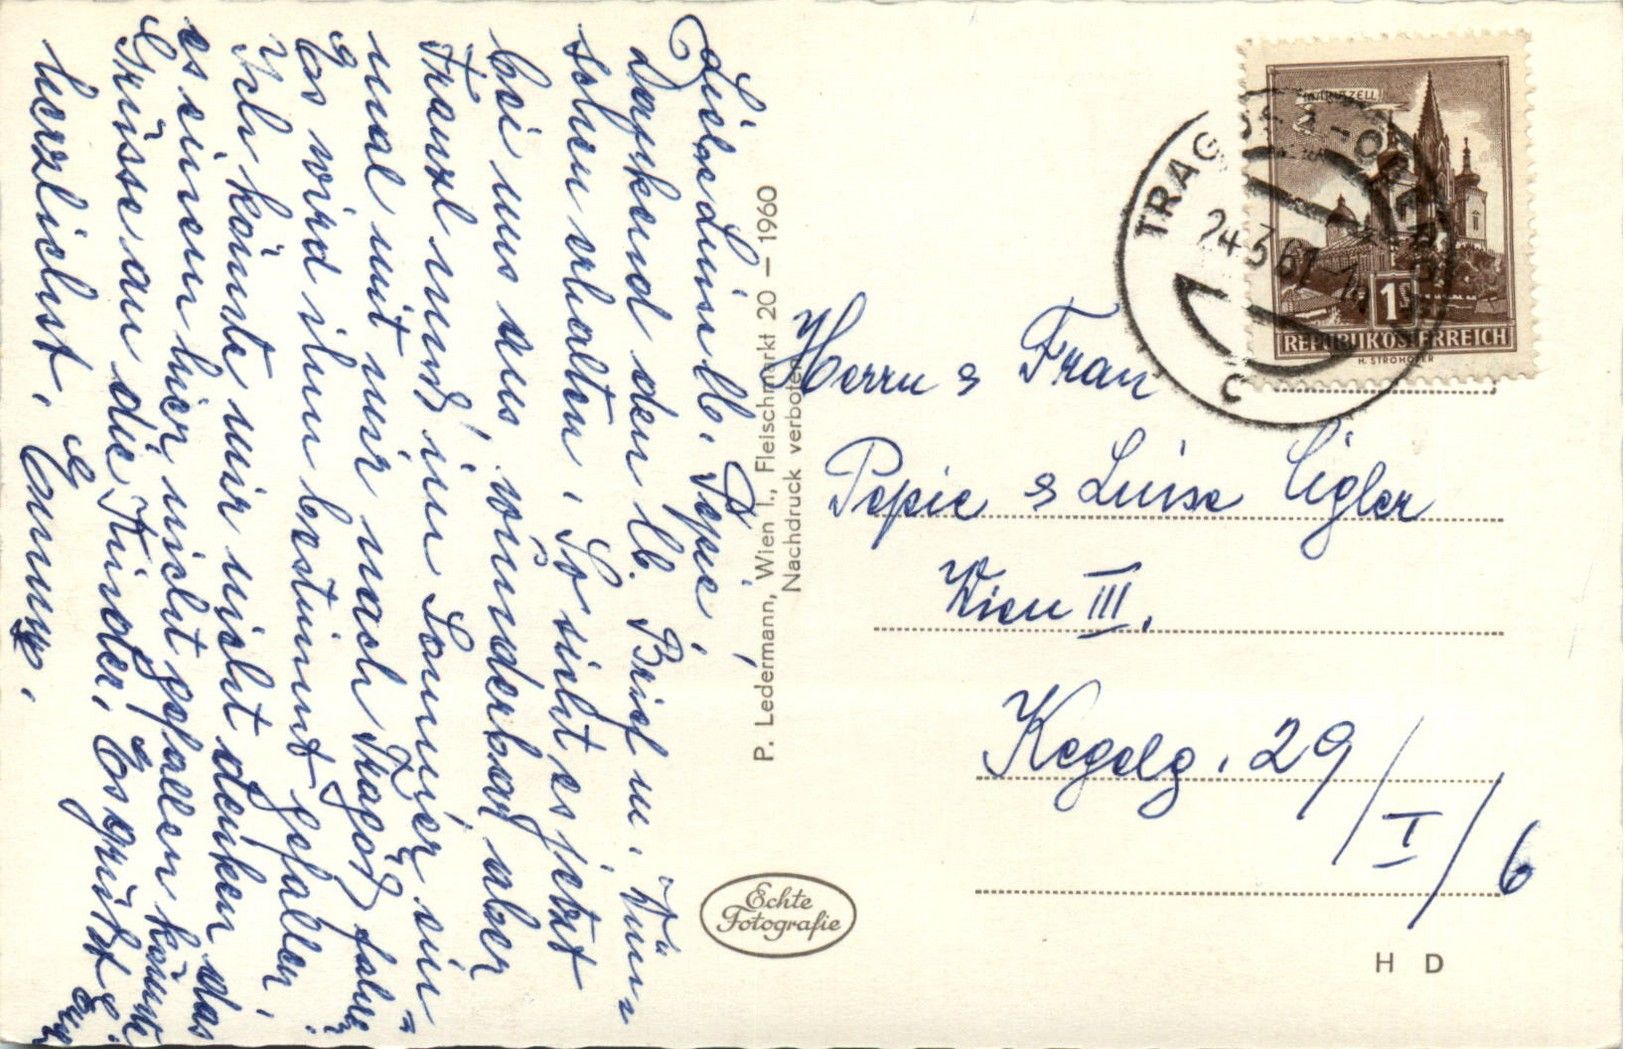 Liebe Luise, lb. Pepi!
Dankend den lb. Brief u. Wün-
schen erhalten. So sieht es jetzt
bei uns aus, wunderbar aber
Franzl muß im Sommer ein-
mal mit mir nach Tragöß fahren
Es wird ihm bestimmt gefallen,
Ich könnte mir nicht denken das
es einem hier nicht gefallen könnte
Grüsse an die Kinder, Es grüßt Euch
herzlichst,
P. Ledermann, Wien I., Fleischmarkt 20 – 1960
Nachdruck verboten
Echte
Fotografie
MARIAZELL
1S
REPUBLIK ÖSTERREICH
H. STROHOFER
24.3.61
c
Herrn & Frau
Pepie & Luise Cigler
Wien III.
Kegelg. 29/I/6
H D